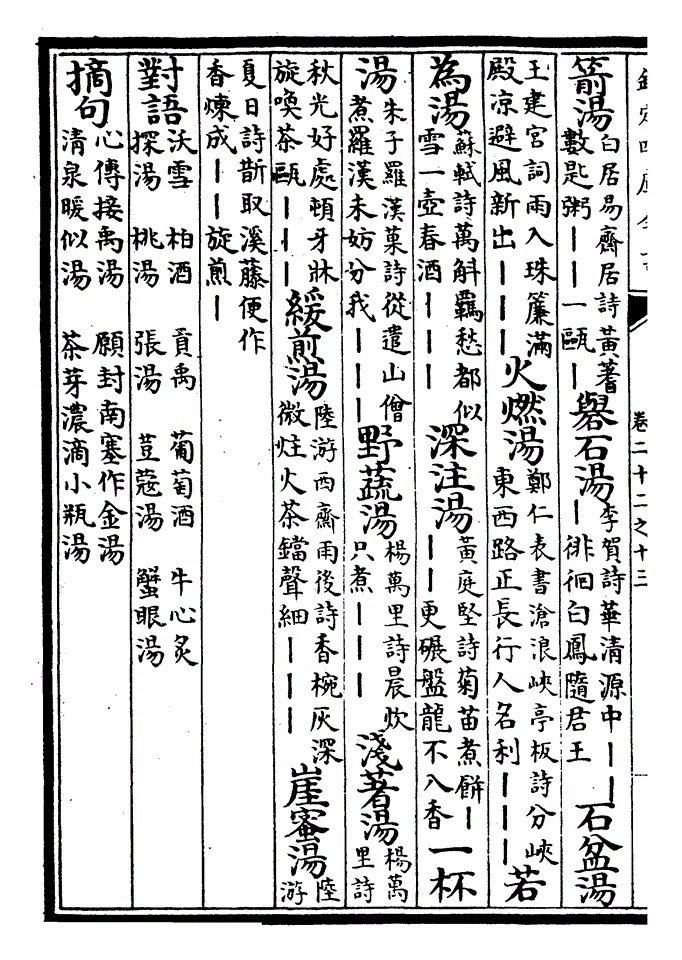 欽定四庫全書
卷二十二之十三
箭湯白居易齋居詩黃蓍數匙粥｜｜一甌｜礜石湯李賀詩華清源中｜｜｜徘徊白鳳隨君王石盆湯
王建宮詞雨入珠簾滿殿凉避風新出｜｜｜火燃湯鄭仁表書滄浪峽亭板詩分峽東西路正長行人名利｜｜｜若
為湯蘇軾詩萬斛羈愁都似雪一壺春酒｜｜｜深注湯黃庭堅詩菊苗煮餅｜｜｜更碾盤龍不入香一杯
湯朱子羅漢菓詩從遣山僧煮羅漢未妨分我｜｜｜野蔬湯楊萬里詩晨炊只煮｜｜｜淺著湯楊萬里詩
秋光好處頓牙牀旋喚茶甌｜｜｜緩煎湯陸游西齋雨後詩香椀灰深微炷火茶鐺聲細｜｜｜崖蜜湯陸游
夏日詩斮取溪藤便作香煉成｜｜旋煎｜
對語沃雪 探湯 柏酒 桃湯 貢禹 張湯 葡萄酒 荳蔻湯 牛心炙 蟹眼湯
摘句心傳接禹湯 清泉暖似湯 願封南塞作金湯 茶芽濃滴小瓶湯